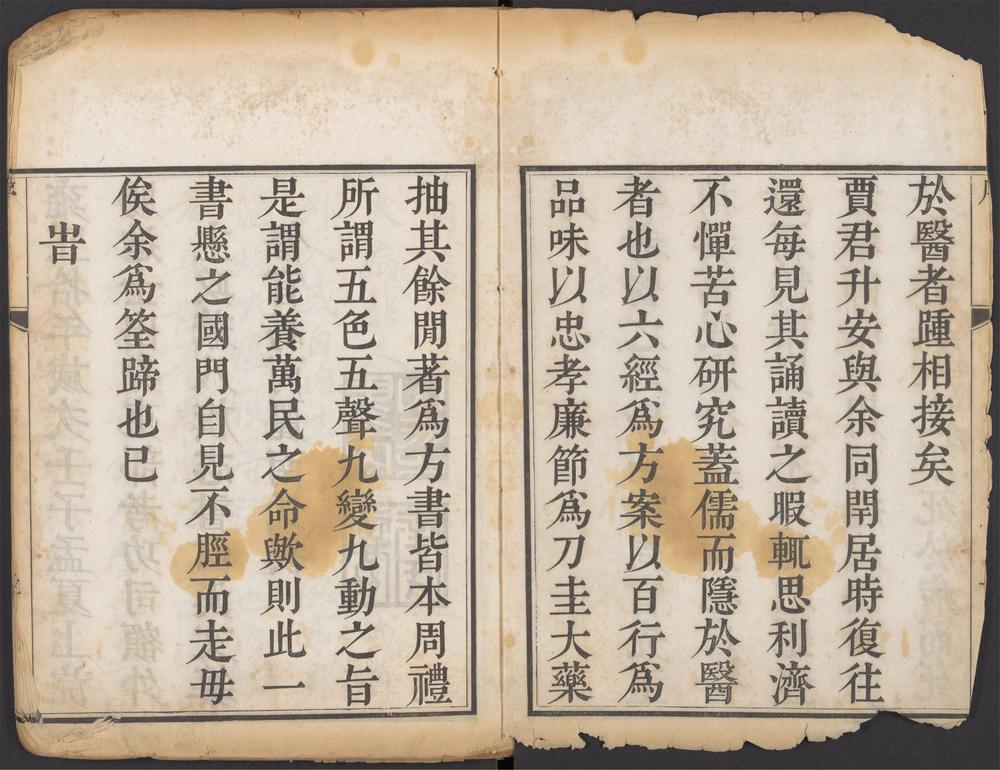 於醫者踵相接矣
賈君升安與余同閈居時復往
還每見其誦讀之暇輒思利濟
不憚苦心研究蓋儒而隱於醫
者也以六經爲方案以百行爲
品味以忠孝廉節爲刀圭大藥
抽其餘閒著爲方書皆本周禮
所謂五色五聲九變九動之旨
是謂能養萬民之命歟則此一
書懸之國門自見不脛而走毋
俟余爲筌蹄也已
旹